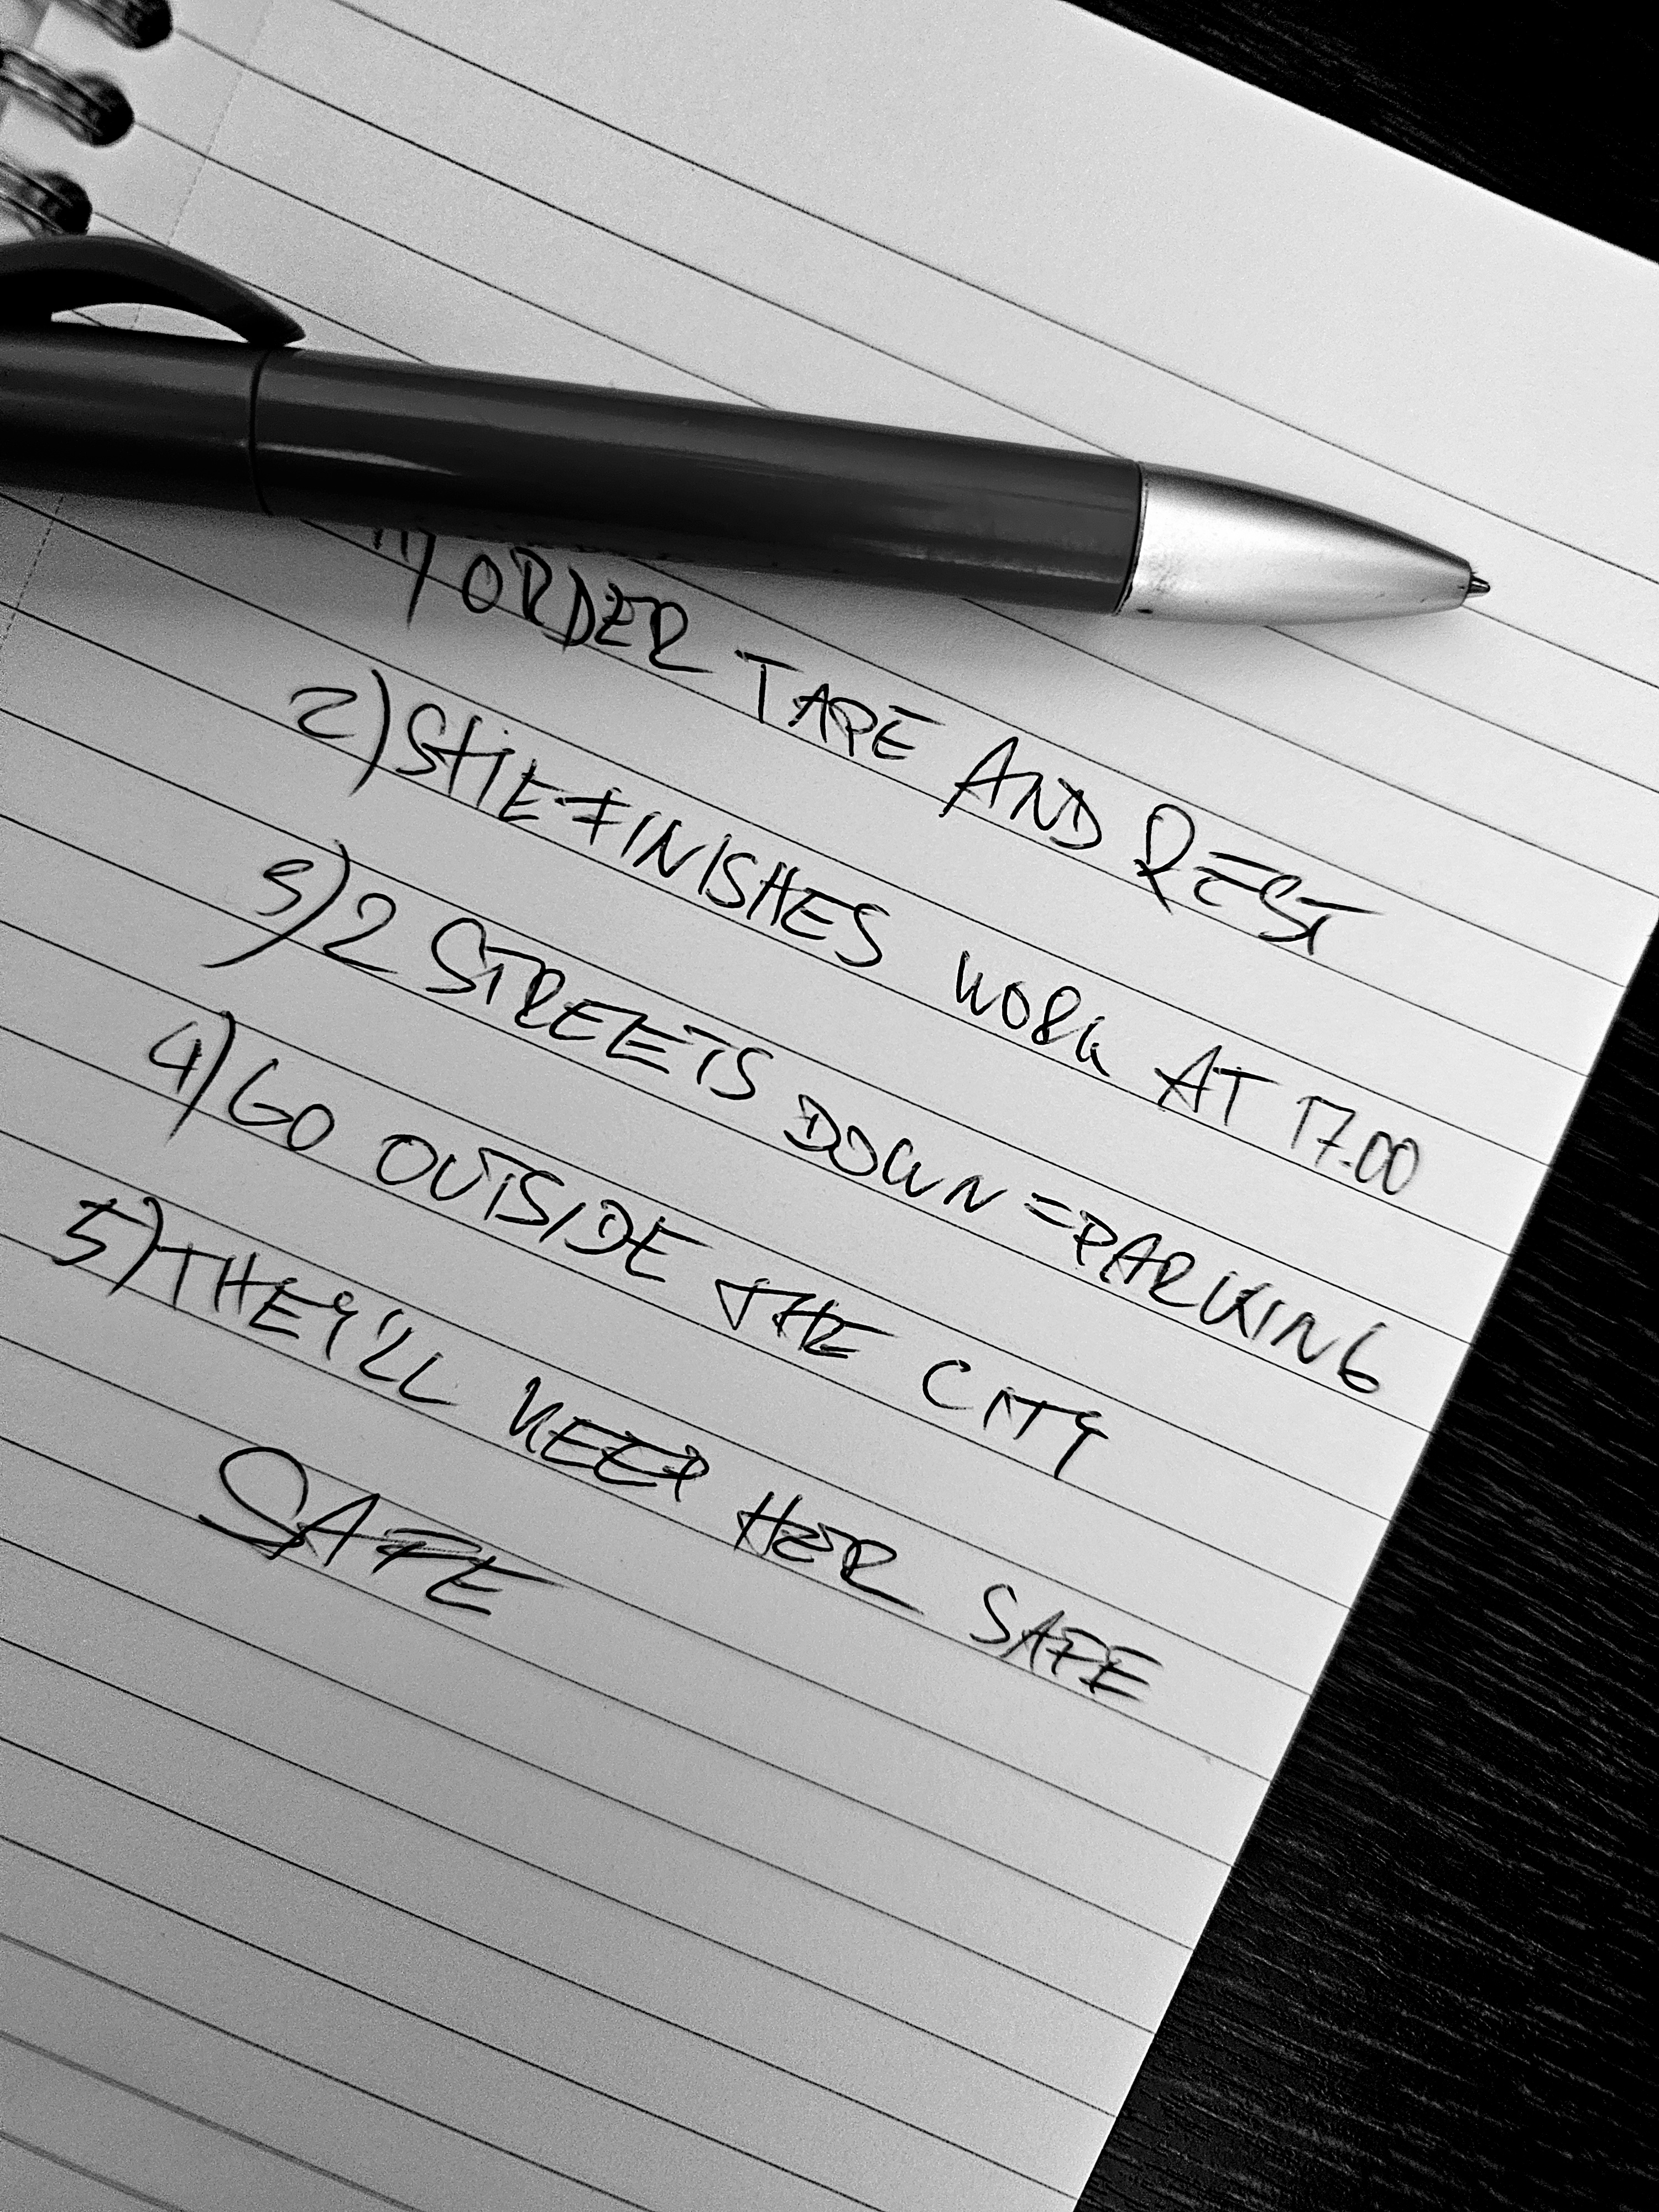 1) ORDER TAPE AND REST
2) SHE FINISHES WORK AT 17.00
3) 2 STREETS DOWN = PARKING
4) GO OUTSIDE THE CITY
5) THEY'LL KEEP HER SAFE
SAFE